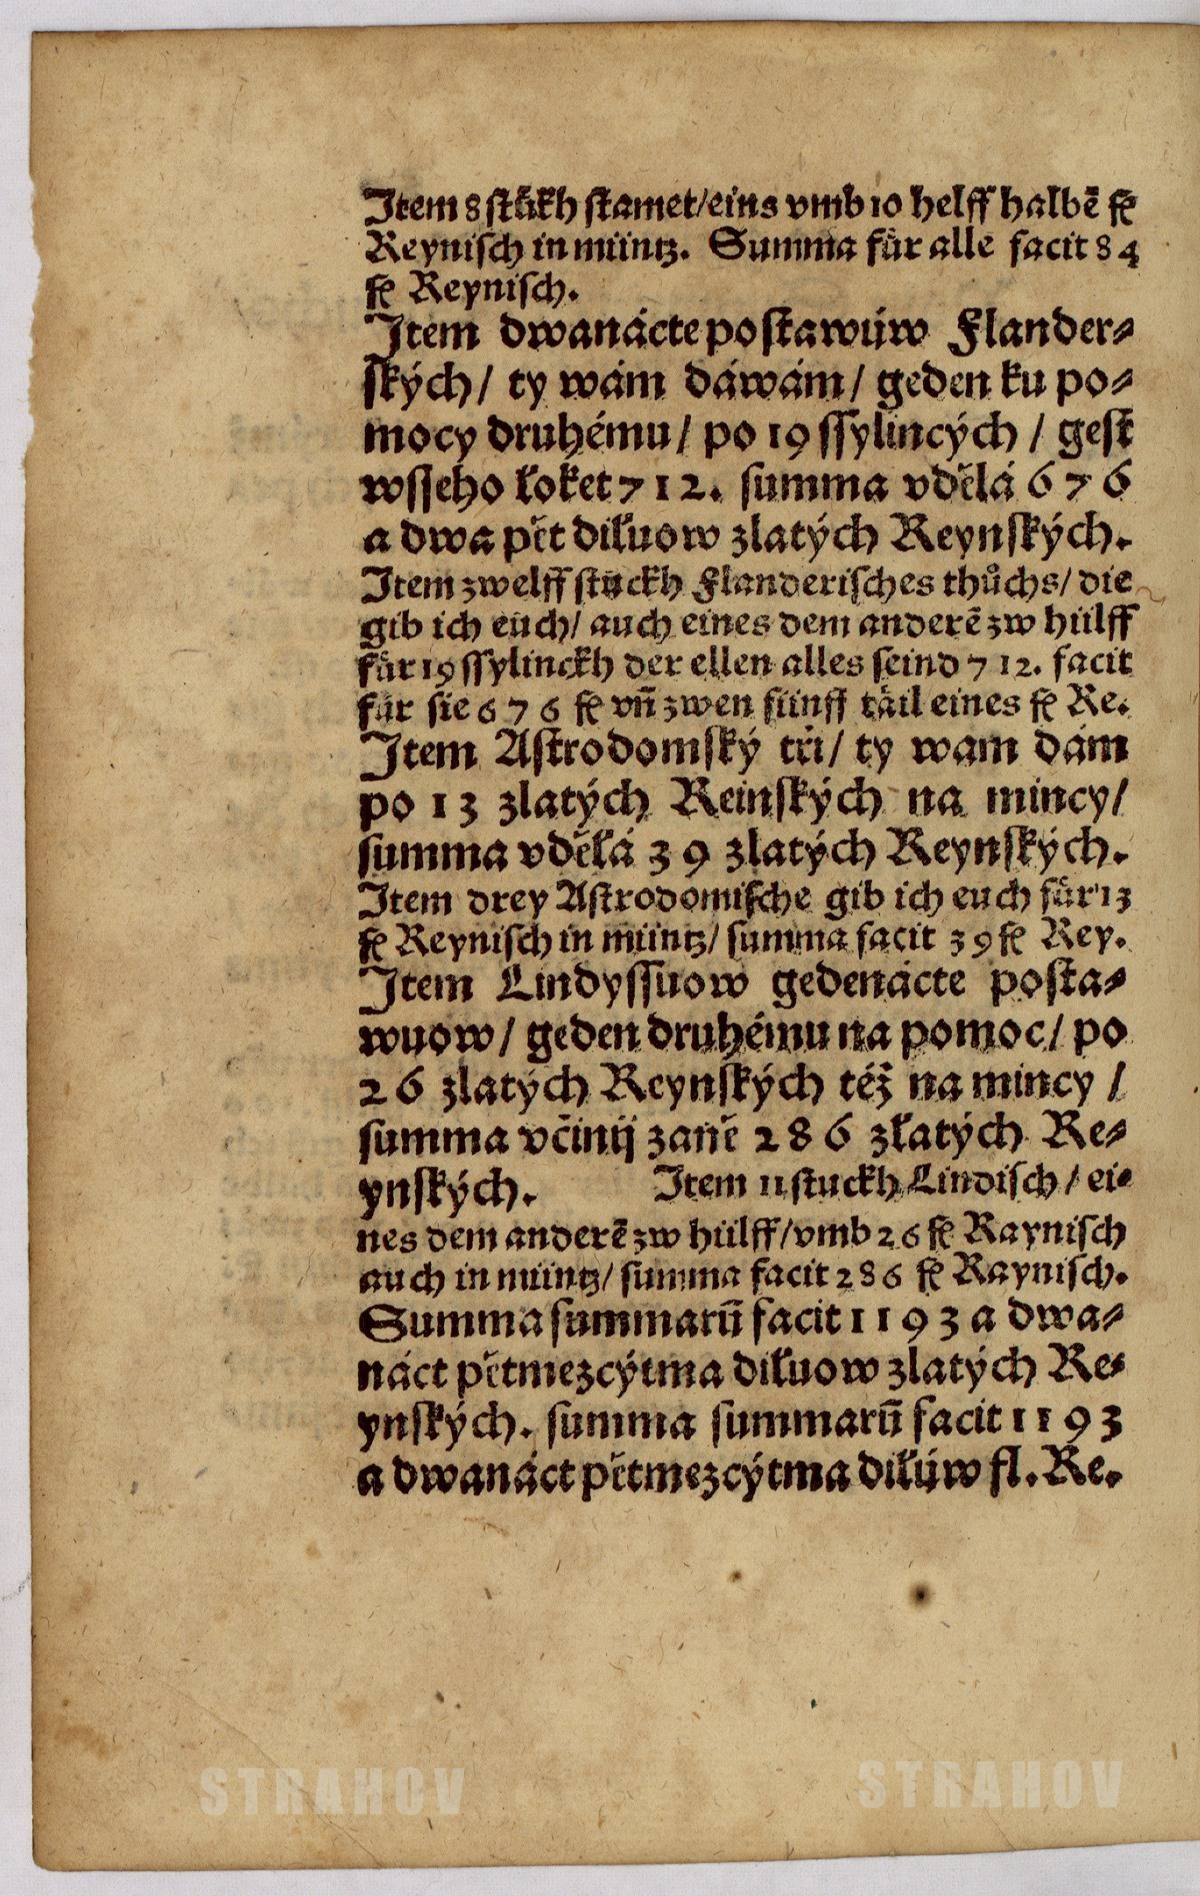 Item 8 stůkh stamet/eins vmb 10 helff halbē fl
Reynisch in müntz. Summa fůr alle facit 84
fl Reynisch.
Item dwanácte postawúw Flander-
ských/ ty wám dáwám/ geden ku po-
mocy druhému/ po 19 ssylincých/ gest
wsseho loket 712. summa vdělá 676
a dwa pět diluow zlatých Reynských.
Item zwelff stuckh Flanderisches thůchs/ die
gib ich euch/ auch eines dem anderē zw hülff
fůr 19 ssylinckh der ellen alles seind 712. facit
fůr sie 676 fl vn̄ zwen fünff täil eines fl Re.
Item Astrodomský tři/ ty wam dám
po 13 zlatých Reinských na mincy/
summa vdělá 39 zlatých Reynských.
Item drey Astrodomische gib ich euch fůr 13
fl Reynisch in müntz/ summa facit 39 fl Rey.
Item Lindyssuow gedenácte posta-
wuow/ geden druhému na pomoc/ po
26 zlatých Reynských téż na mincy/
summa včinij zaně 286 zlatých Re-
ynských. Item 11 stuckh Lindisch/ ei-
nes dem anderē zw hülff/vmb 26 fl Raynisch
auch in müntz/ summa facit 286 fl Raynisch.
Summa summarū facit 1193 a dwa-
náct pětmezcýtma diluow zlatých Re-
ynských. summa summarū facit 1193
a dwanáct pětmezcýtma dilúw fl. Re.
STRAHOV STRAHOV